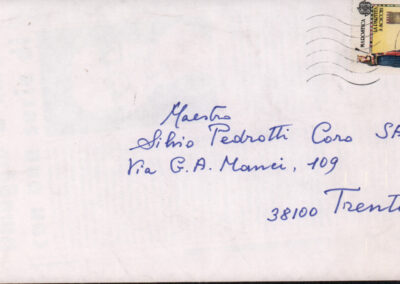 Maestro
Silvio Pedrotti Coro SA
Via G. A. Manci, 109
38100 Trent